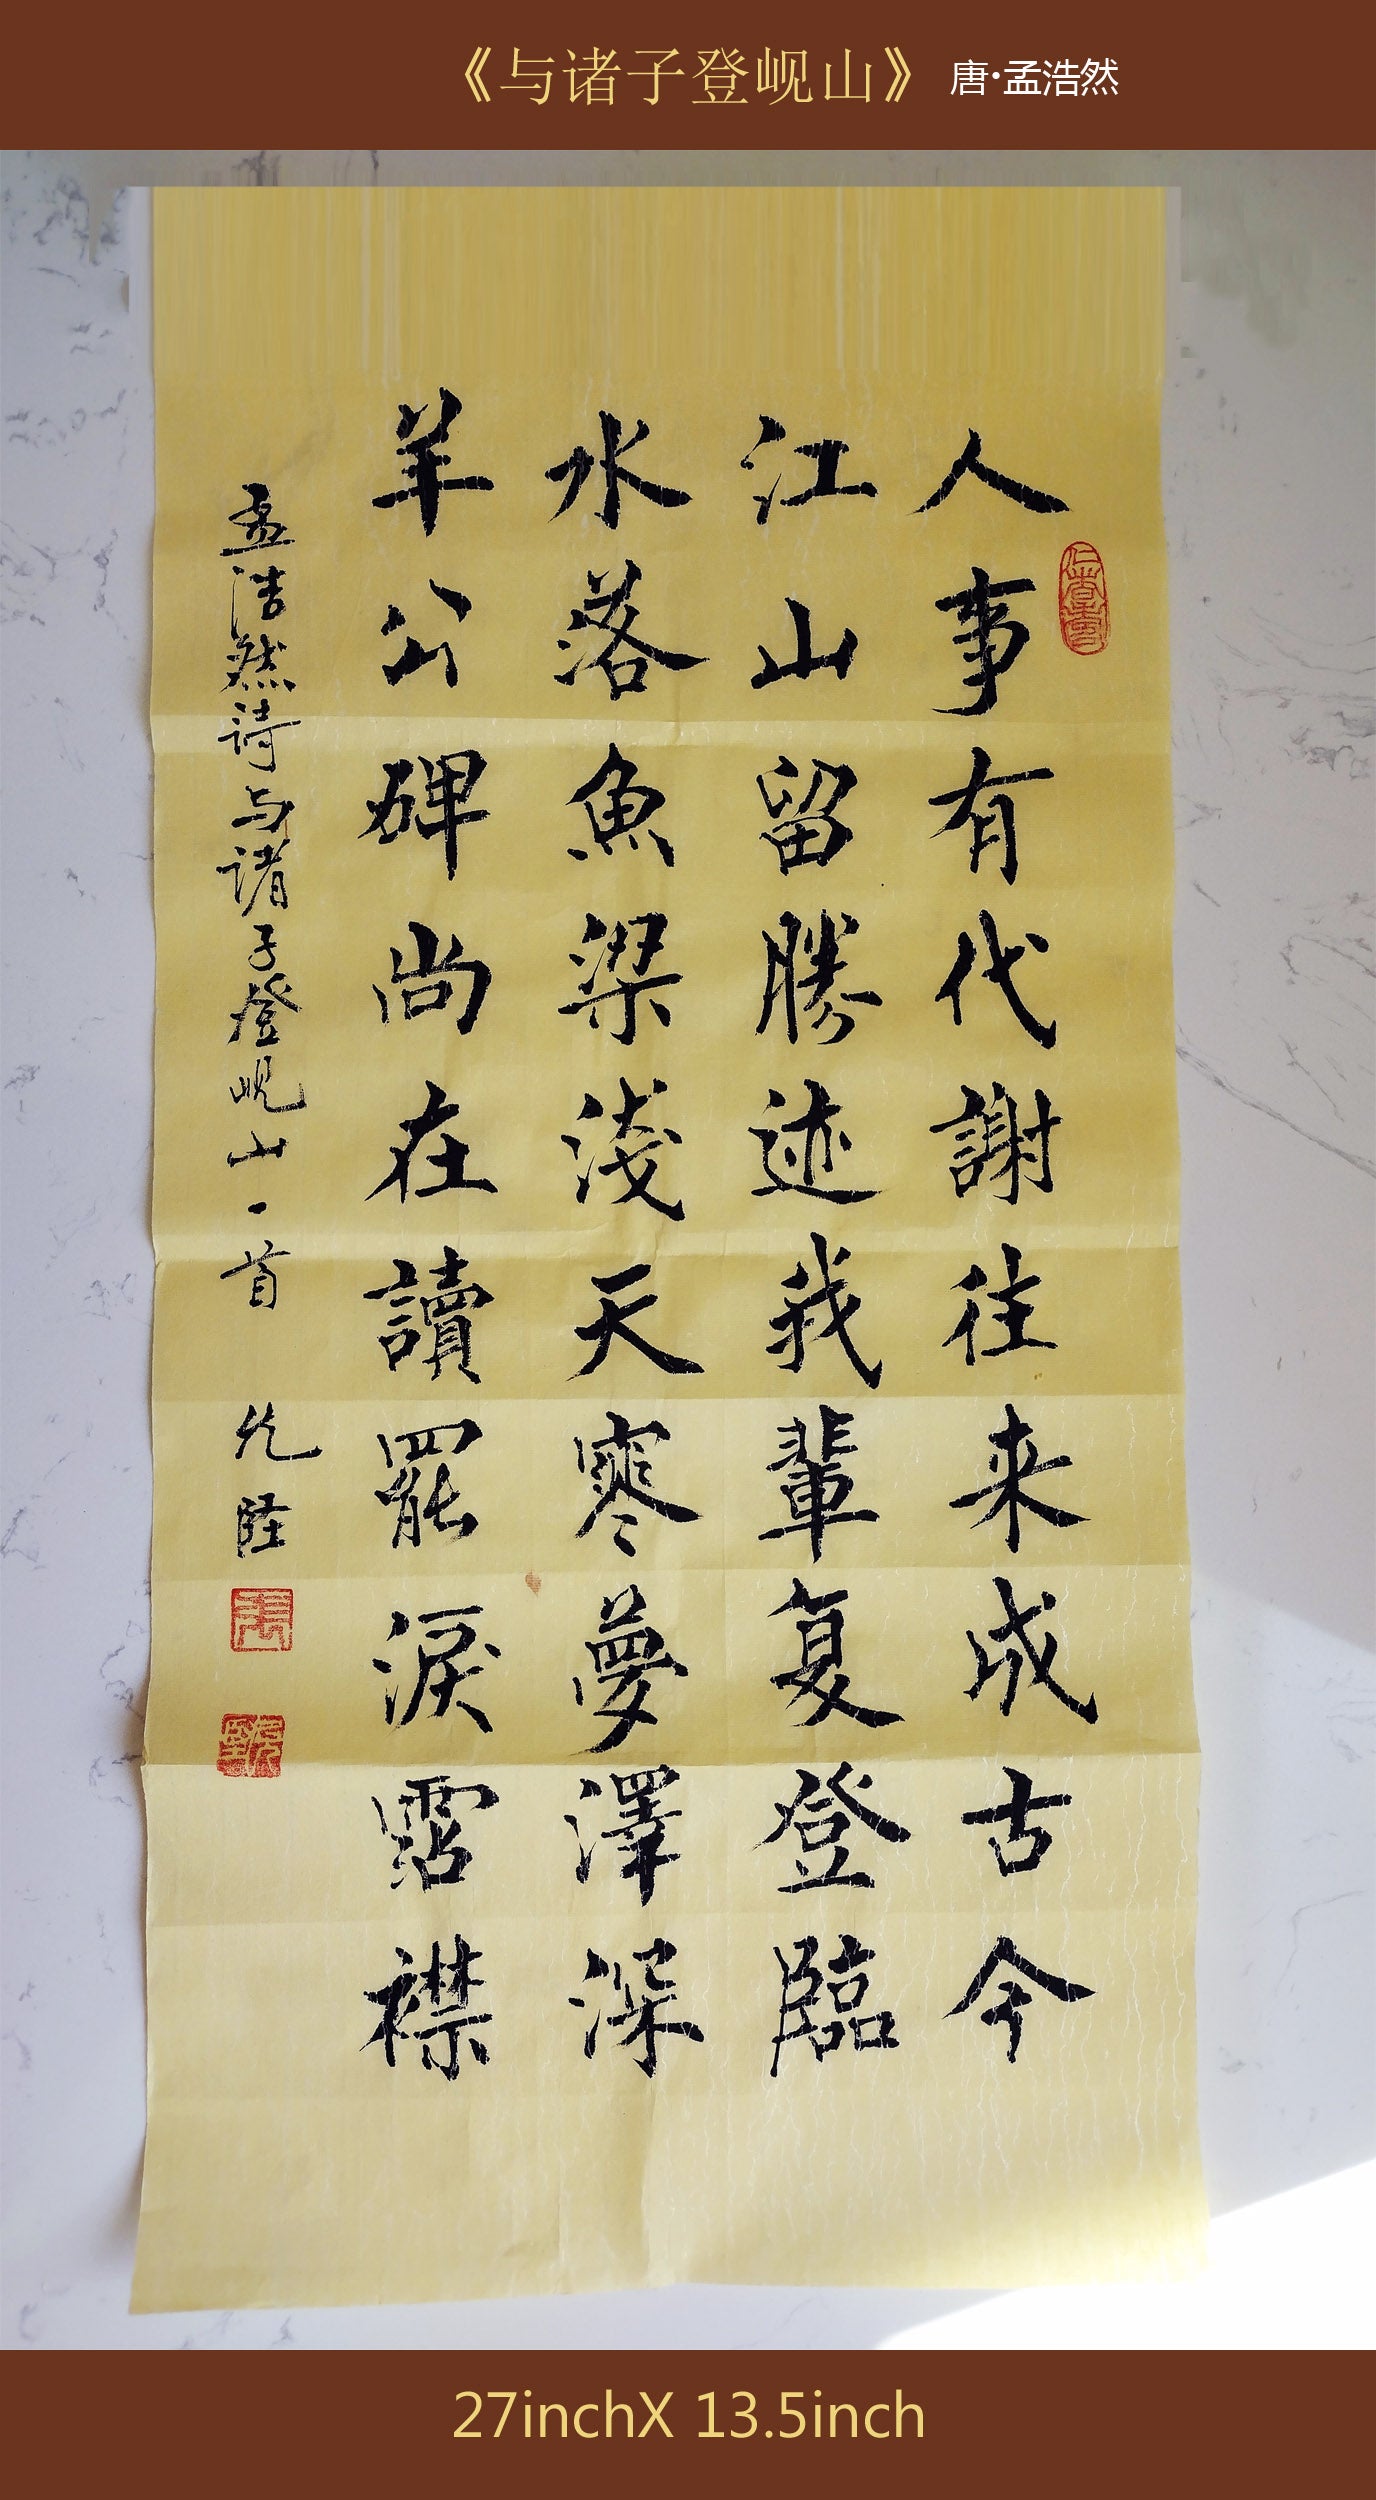 《与诸子登岘山》 唐·孟浩然
人事有代謝往来成古今
江山留勝迹我輩复登臨
水落魚梁淺天寒夢澤深
羊公碑尚在讀罷淚霑襟
孟浩然诗与诸子登岘山一首
27inchX 13.5inch